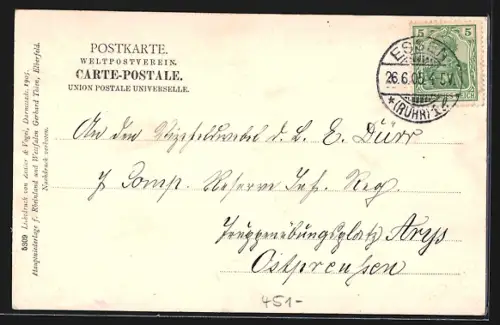 POSTKARTE.
WELTPOSTVEREIN.
CARTE-POSTALE.
UNION POSTALE UNIVERSELLE.
5 5
ESSEN
26.6.05. 4-5V.
*(RUHR)1.
REICH
An den Vizefeldwebel d. L. E. Dürr
7 Comp. Reserve Inf. Reg.
Truppenübungsplatz Arys
Ostpreussen
451-
5309 Lichtdruck von & Vogel, Darmstadt
Hauptniederlage f. Rheinland und Westfalen Gerhard Elberfeld.
Nachdruck verboten.